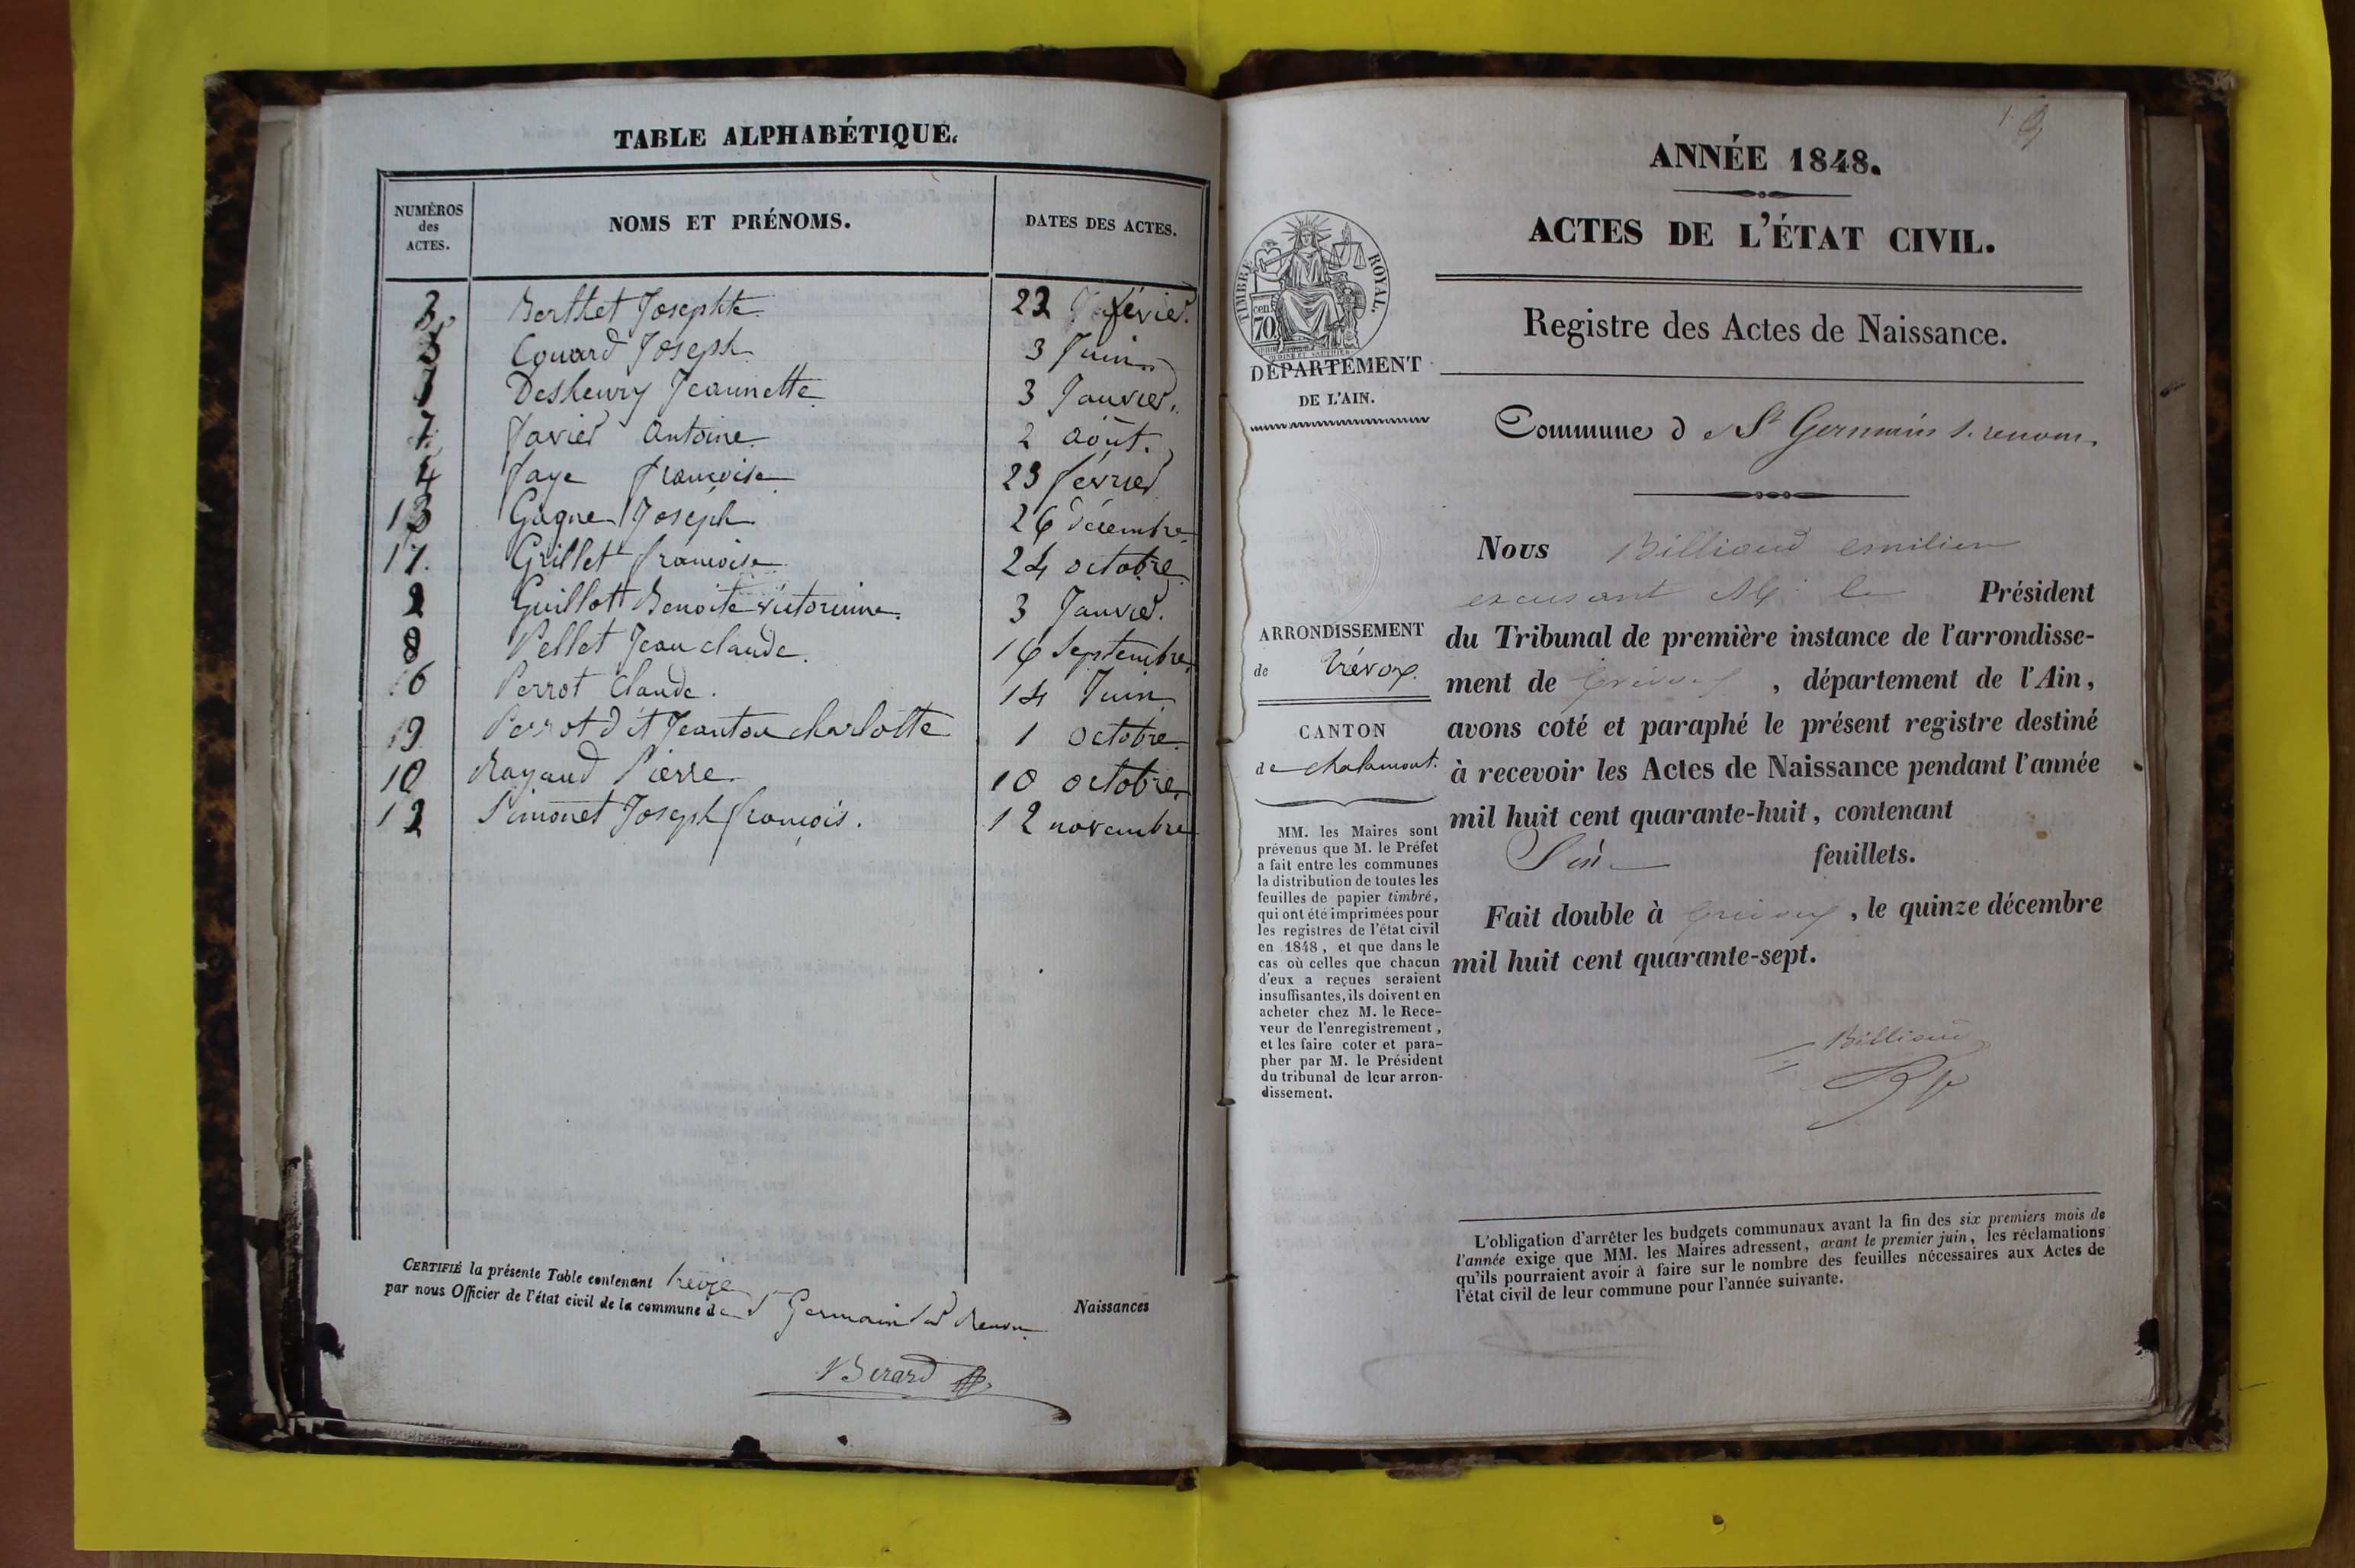 TABLE ALPHABÉTIQUE.
NUMÉROS
des
ACTES.
NOMS ET PRÉNOMS.
DATES DES ACTES.
3. Berthet Josephte 22 février.
5 Couard Joseph 3 Juin
1 Desheury Jeannette 3 Janvier.
7. Javier Antoine 2 août.
4 Faye françoise 23 février
13 Gagne Joseph 26 décembre
11. Grillet françoise 24 octobre
2 Guillot Benoite victorinne. 3 Janvier.
8 Pellet Jean claude. 16 Septembre
6 Perrot Claude. 14 Juin
9 Perrot dit Jeanton charlotte 1 octobre
10 Rayaud Pierre. 10 octobre
12 Simonet Joseph françois. 12 novembre
CERTIFIÉ la présente Table contenant treize Naissances
par nous Officier de l'état civil de la commune de St Germain sur Renon
Berard
ANNÉE 1848.
ACTES DE L'ÉTAT CIVIL.
TIMBRE ROYAL.
cen.
70
DÉPARTEMENT
DE L'AIN.
Registre des Actes de Naissance.
Commune d e St Germain s. renom.
ARRONDISSEMENT
de Trévoux.
CANTON
de chalamont.
MM. les Maires sont
prévenus que M. le Préfet
a fait entre les communes
la distribution de toutes les
feuilles de papier timbré,
qui ont été imprimées pour
les registres de l'état civil
en 1848, et que dans le
cas où celles que chacun
d'eux a reçues seraient
insuffisantes, ils doivent en
acheter chez M. le Rece-
veur de l'enregistrement,
et les faire coter et para-
pher par M. le Président
du tribunal de leur arron-
dissement.
Nous Billioud emilien
excusant M. le Président
du Tribunal de première instance de l'arrondisse-
ment de Trévoux, département de l'Ain,
avons coté et paraphé le présent registre destiné
à recevoir les Actes de Naissance pendant l'année
mil huit cent quarante-huit, contenant
Six feuillets.
Fait double à Trévoux, le quinze décembre
mil huit cent quarante-sept.
Billioud
L'obligation d'arrêter les budgets communaux avant la fin des six premiers mois de
l'année exige que MM. les Maires adressent, avant le premier juin, les réclamations
qu'ils pourraient avoir à faire sur le nombre des feuilles nécessaires aux Actes de
l'état civil de leur commune pour l'année suivante.